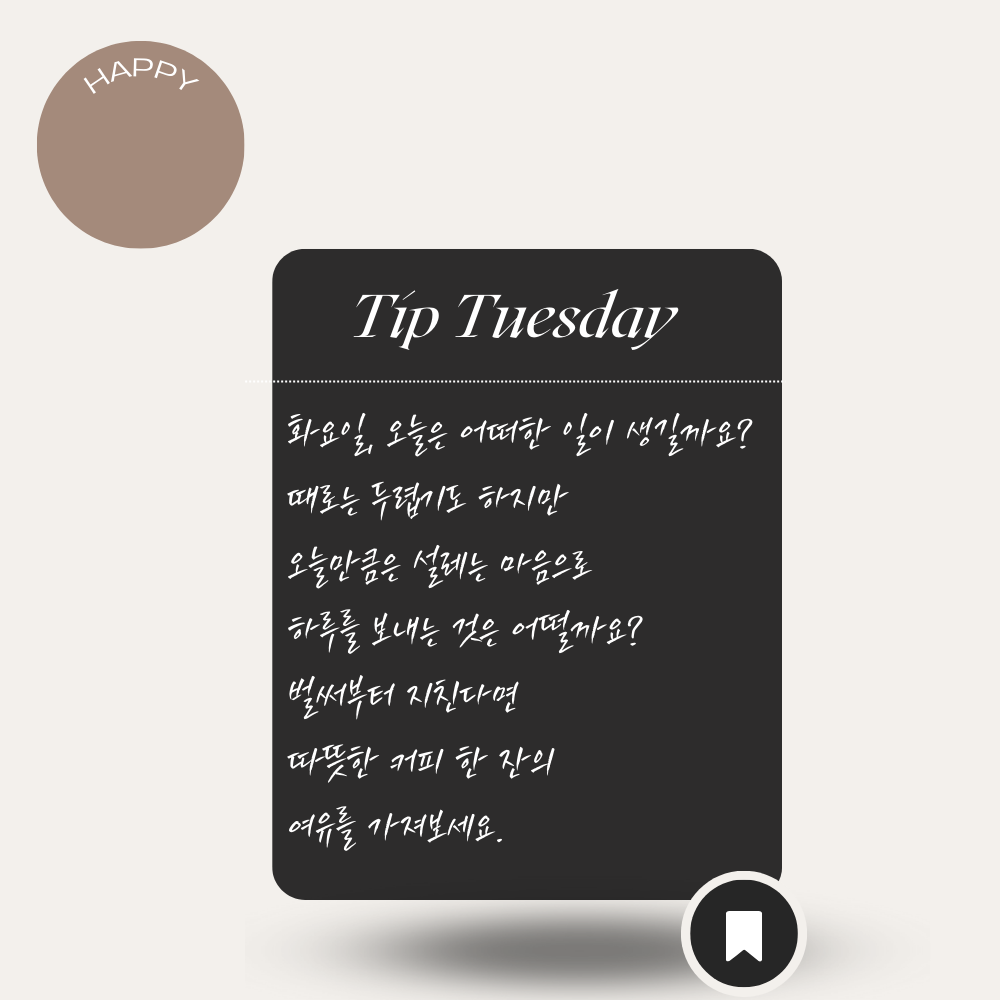 HAPPY
Tip Tuesday
화요일, 오늘은 어떠한 일이 생길까요?
때로는 두렵기도 하지만
오늘만큼은 설레는 마음으로
하루를 보내는 것은 어떨까요?
벌써부터 지친다면
따뜻한 커피 한 잔의
여유를 가져보세요.